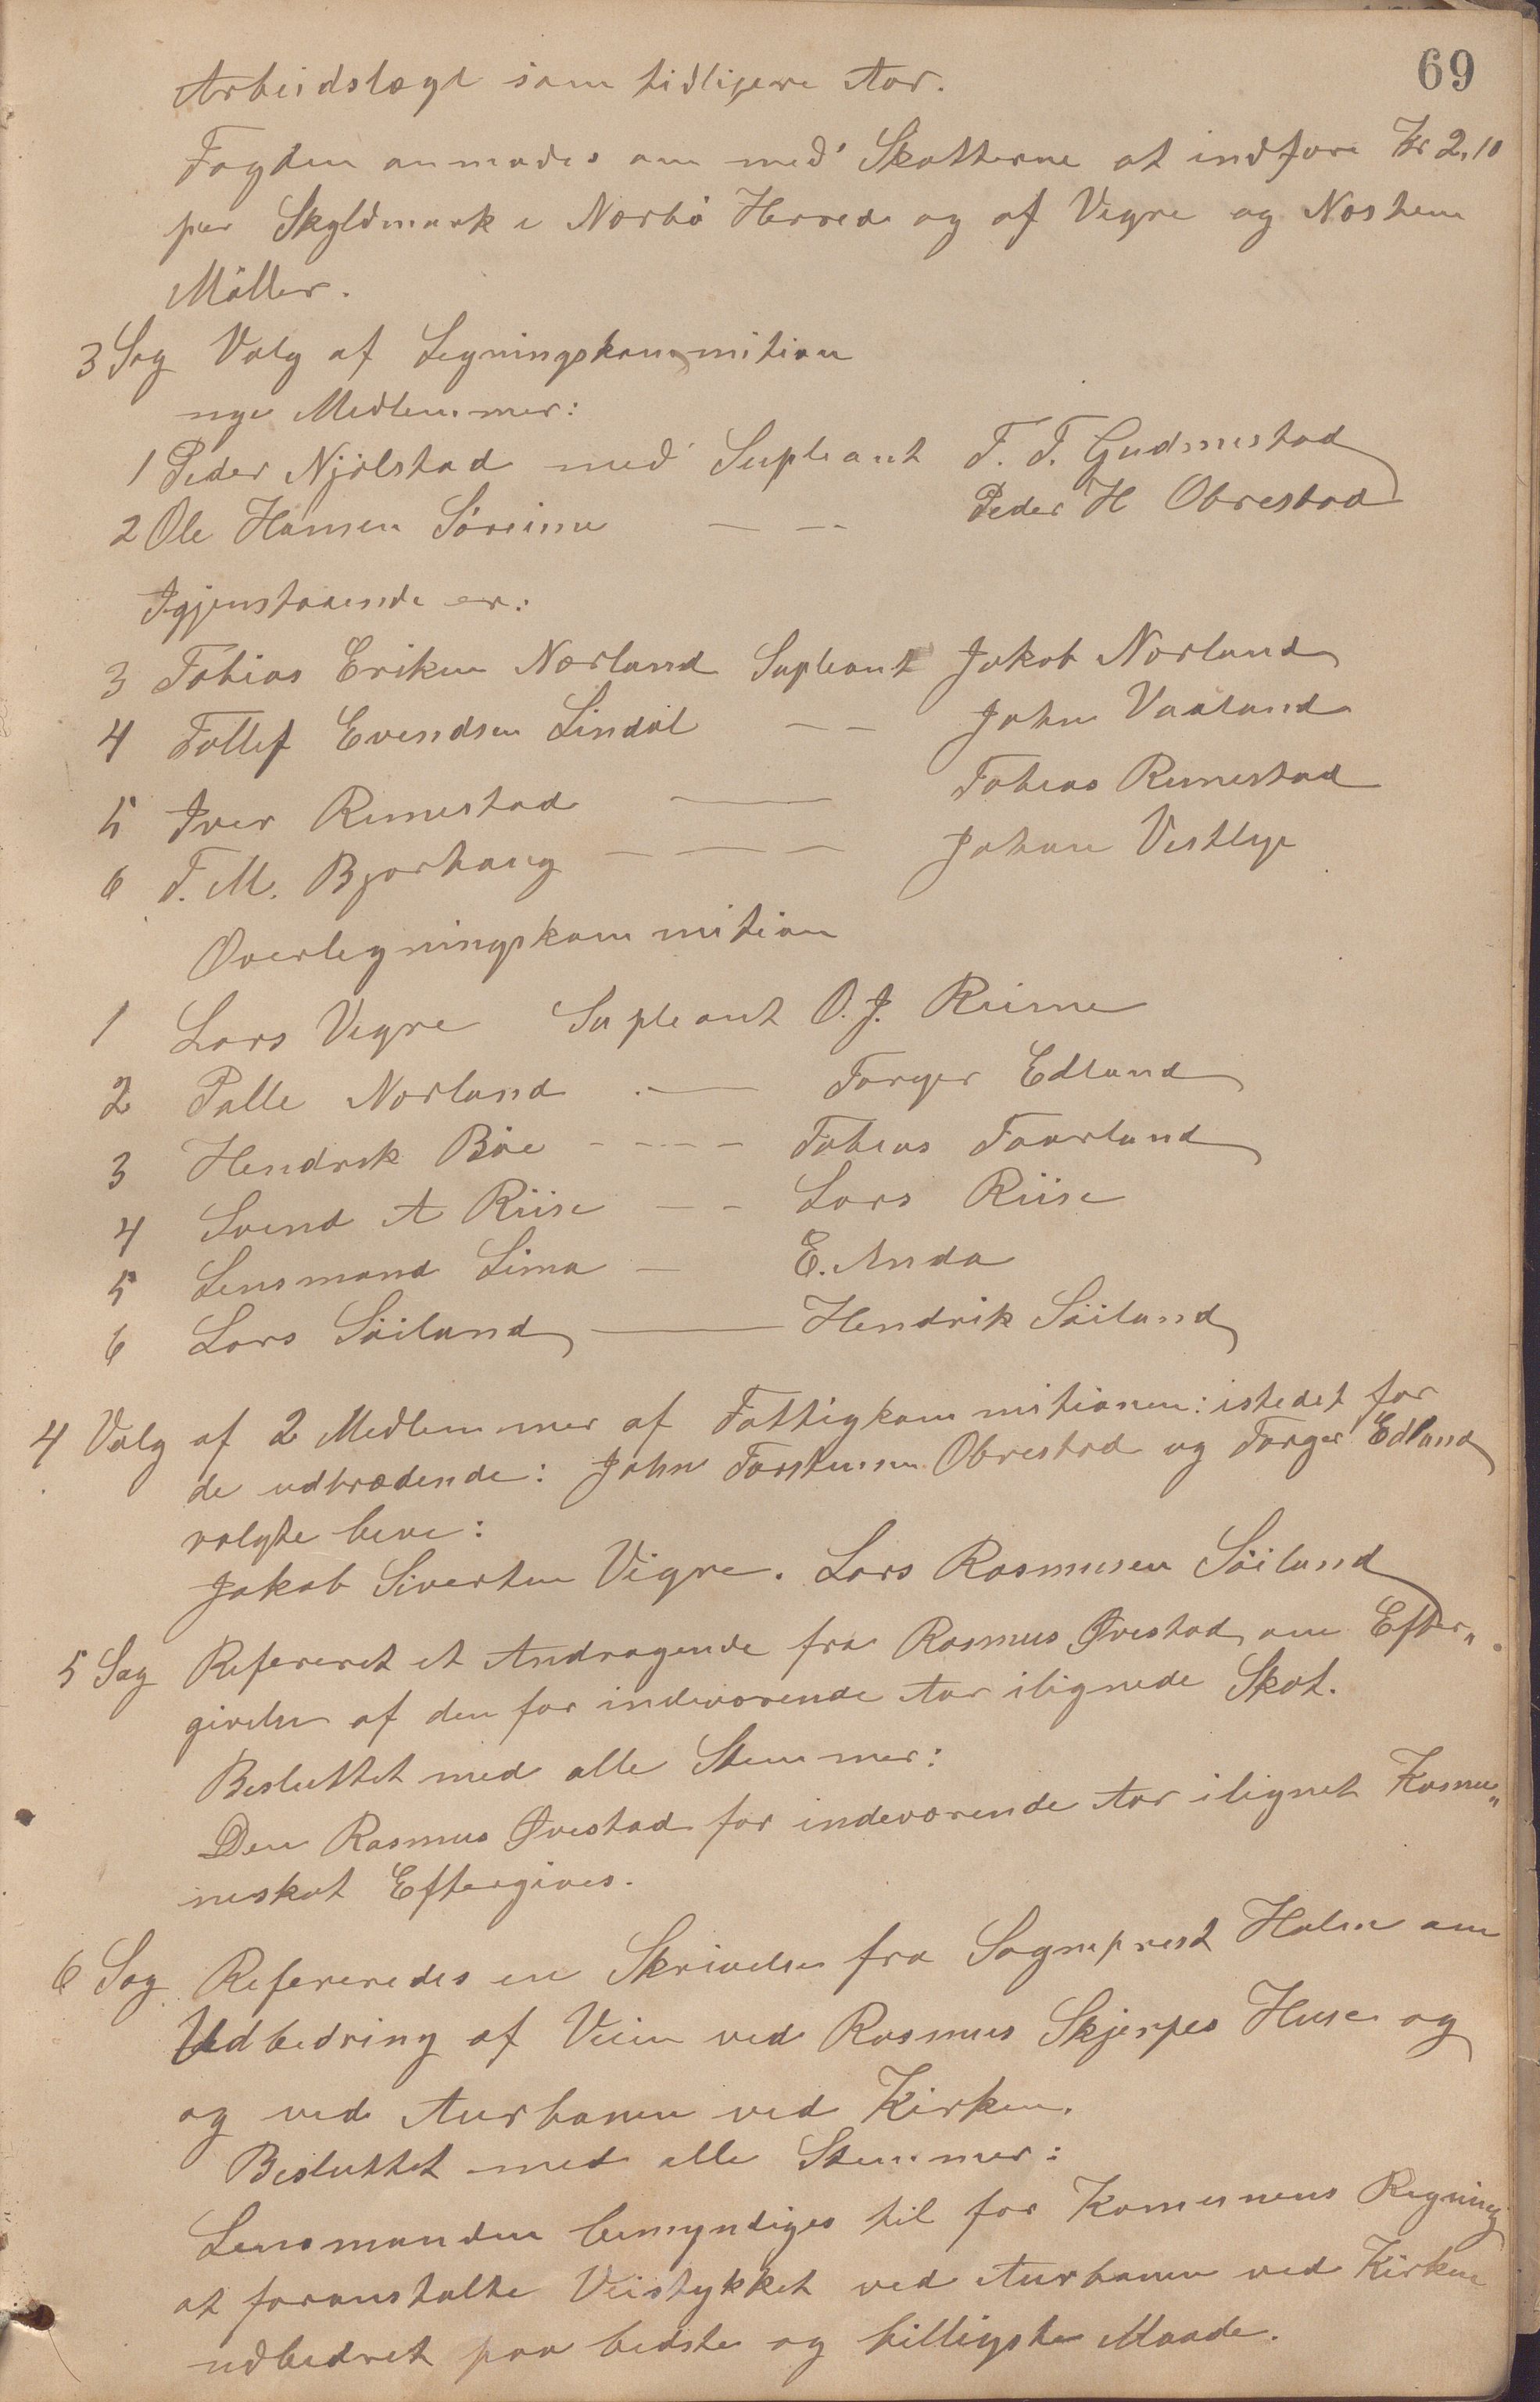 69
Arbeidslægd som tidligere Aar.
Fogden anmodes om med Skatterne at indføre Kr 2,10
per Skyldmark i Nærbø Herred og af Vigre og Næsheim
Møller.
3 Sag Valg af Ligningskommition
nye Medlemmer:
1 Peder Njølstad med Supleant T. T. Gudmestad
2 Ole Hansen Søreime — — Peder H Obrestad
Igjenstaaende er:
3 Tobias Eriksen Nærland Supleant Jakob Nærland
4 Tollef Evendsen Lindal — — John Vaaland
5 Iver Rimestad —— Tobias Rimestad
6 T. M. Bjorhaug — — — Johan Vestlye
Overligningskommition
1 Lars Vigre Supleant O. J. Reime
2 Palle Nærland — Torger Edland
3 Hendrik Bøe - - - - Tobias Taarland
4 Svend A Riise — - Lars Riise
5 Lensmand Lima — E. Anda
6 Lars Søiland —— Hendrik Søiland
4 Valg af 2 Medlemmer af Fattigkommitionen: istedet for
de udtrædende: John Torstensen Obrestad og Torger Edland
valgte bleve:
Jakob Sivertsen Vigre. Lars Rasmusen Søiland
5 Sag Refereret et Andragende fra Rasmus Øvestad om Efter„
givelse af den for indeværende Aar ilignede Skat.
Besluttet med alle Stemmer:
Den Rasmus Øvestad for indeværende Aar ilignet Komu„
neskat Eftergives.
6 Sag Refereredes en Skrivelse fra Sogneprest Holm om
Udbedring af Veien ved Rasmus Skjerpes Huse og
og ved Aurbanen ved Kirken.
Besluttet med alle Stemmer:
Lensmanden bemyndiges til for Komunens Regning
at foranstalte Veistykket ved Aurbanen ved Kirken
udbedret paa bedste og billigste Maade.